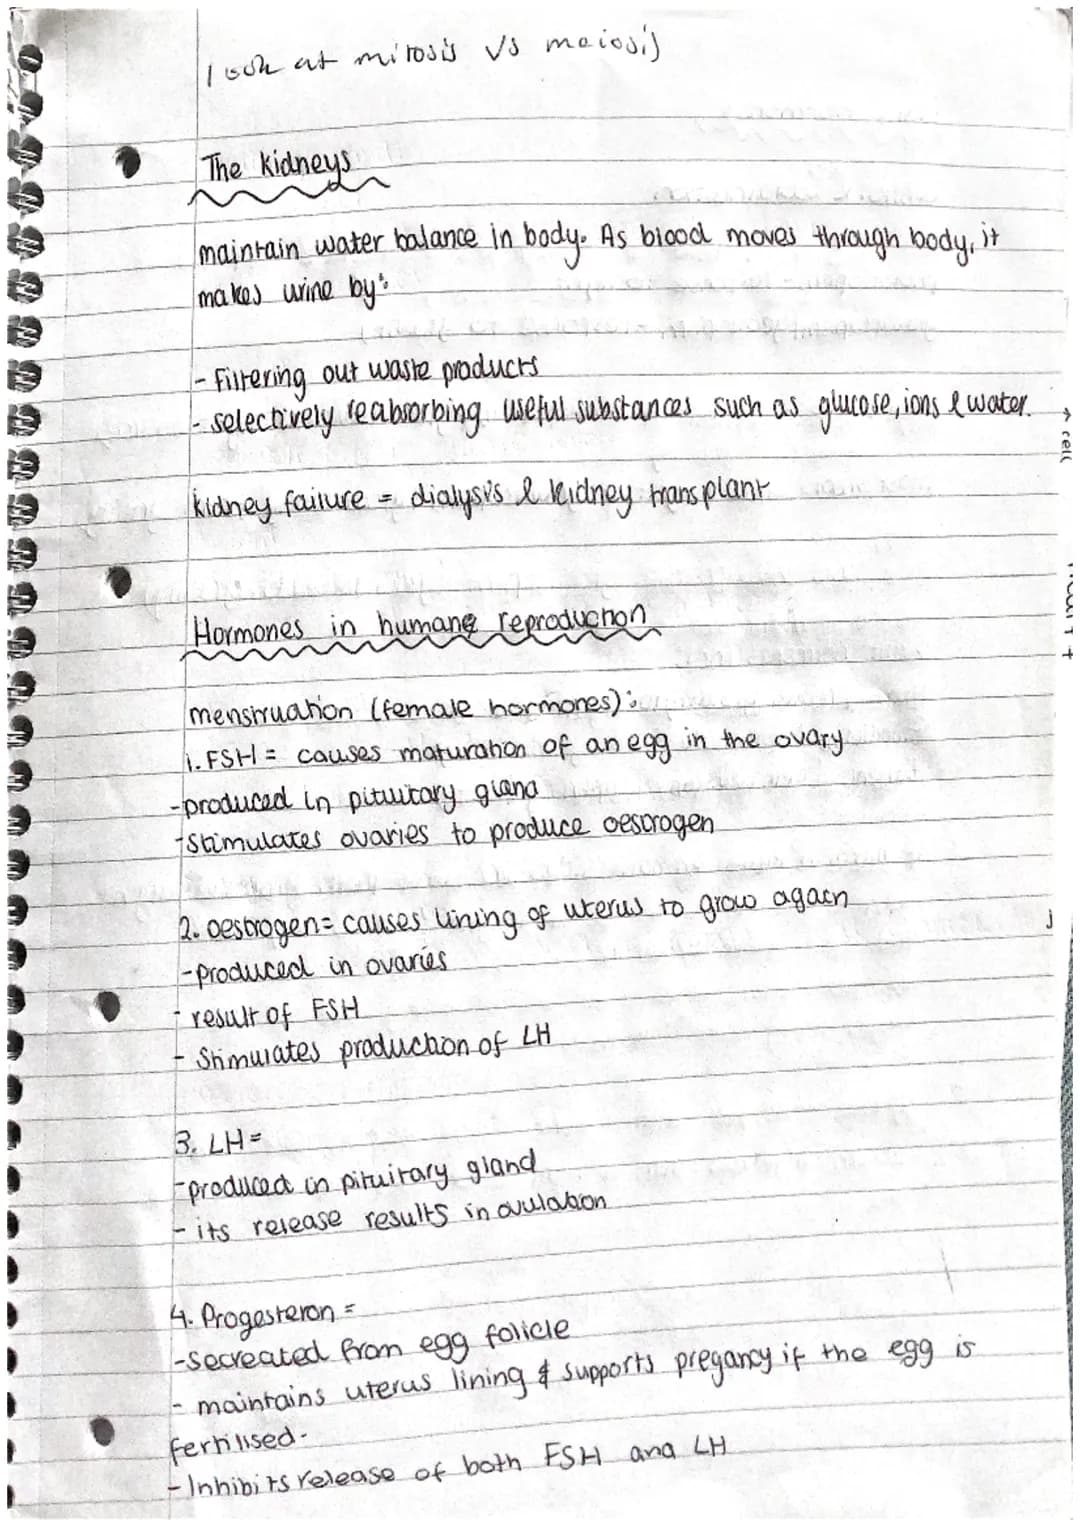 look at mitosis vs meiosis
The kidneys
maintain water balance in body. As blood moves through body, it
makes urine by:
- Filtering out waste products
- selectively reabsorbing useful substances such as glucose, ions & water.
kidney failure = dialysis & kidney transplant
Hormones in humane reproduction
menstruation (female hormones):
1. FSH = causes maturation of an egg in the ovary
- produced in pituitary gland
- Stimulates ovaries to produce oestrogen
2. oestrogen = causes lining of uterus to grow again
- produced in ovaries
- result of FSH
- Stimulates production of LH
3. LH =
- produced in pituitary gland
- its release results in ovulation
4. Progesteron =
- Secreated from egg folicle
- maintains uterus lining & supports pregancy if the egg is
fertilised.
- Inhibits release of both FSH and LH
cell